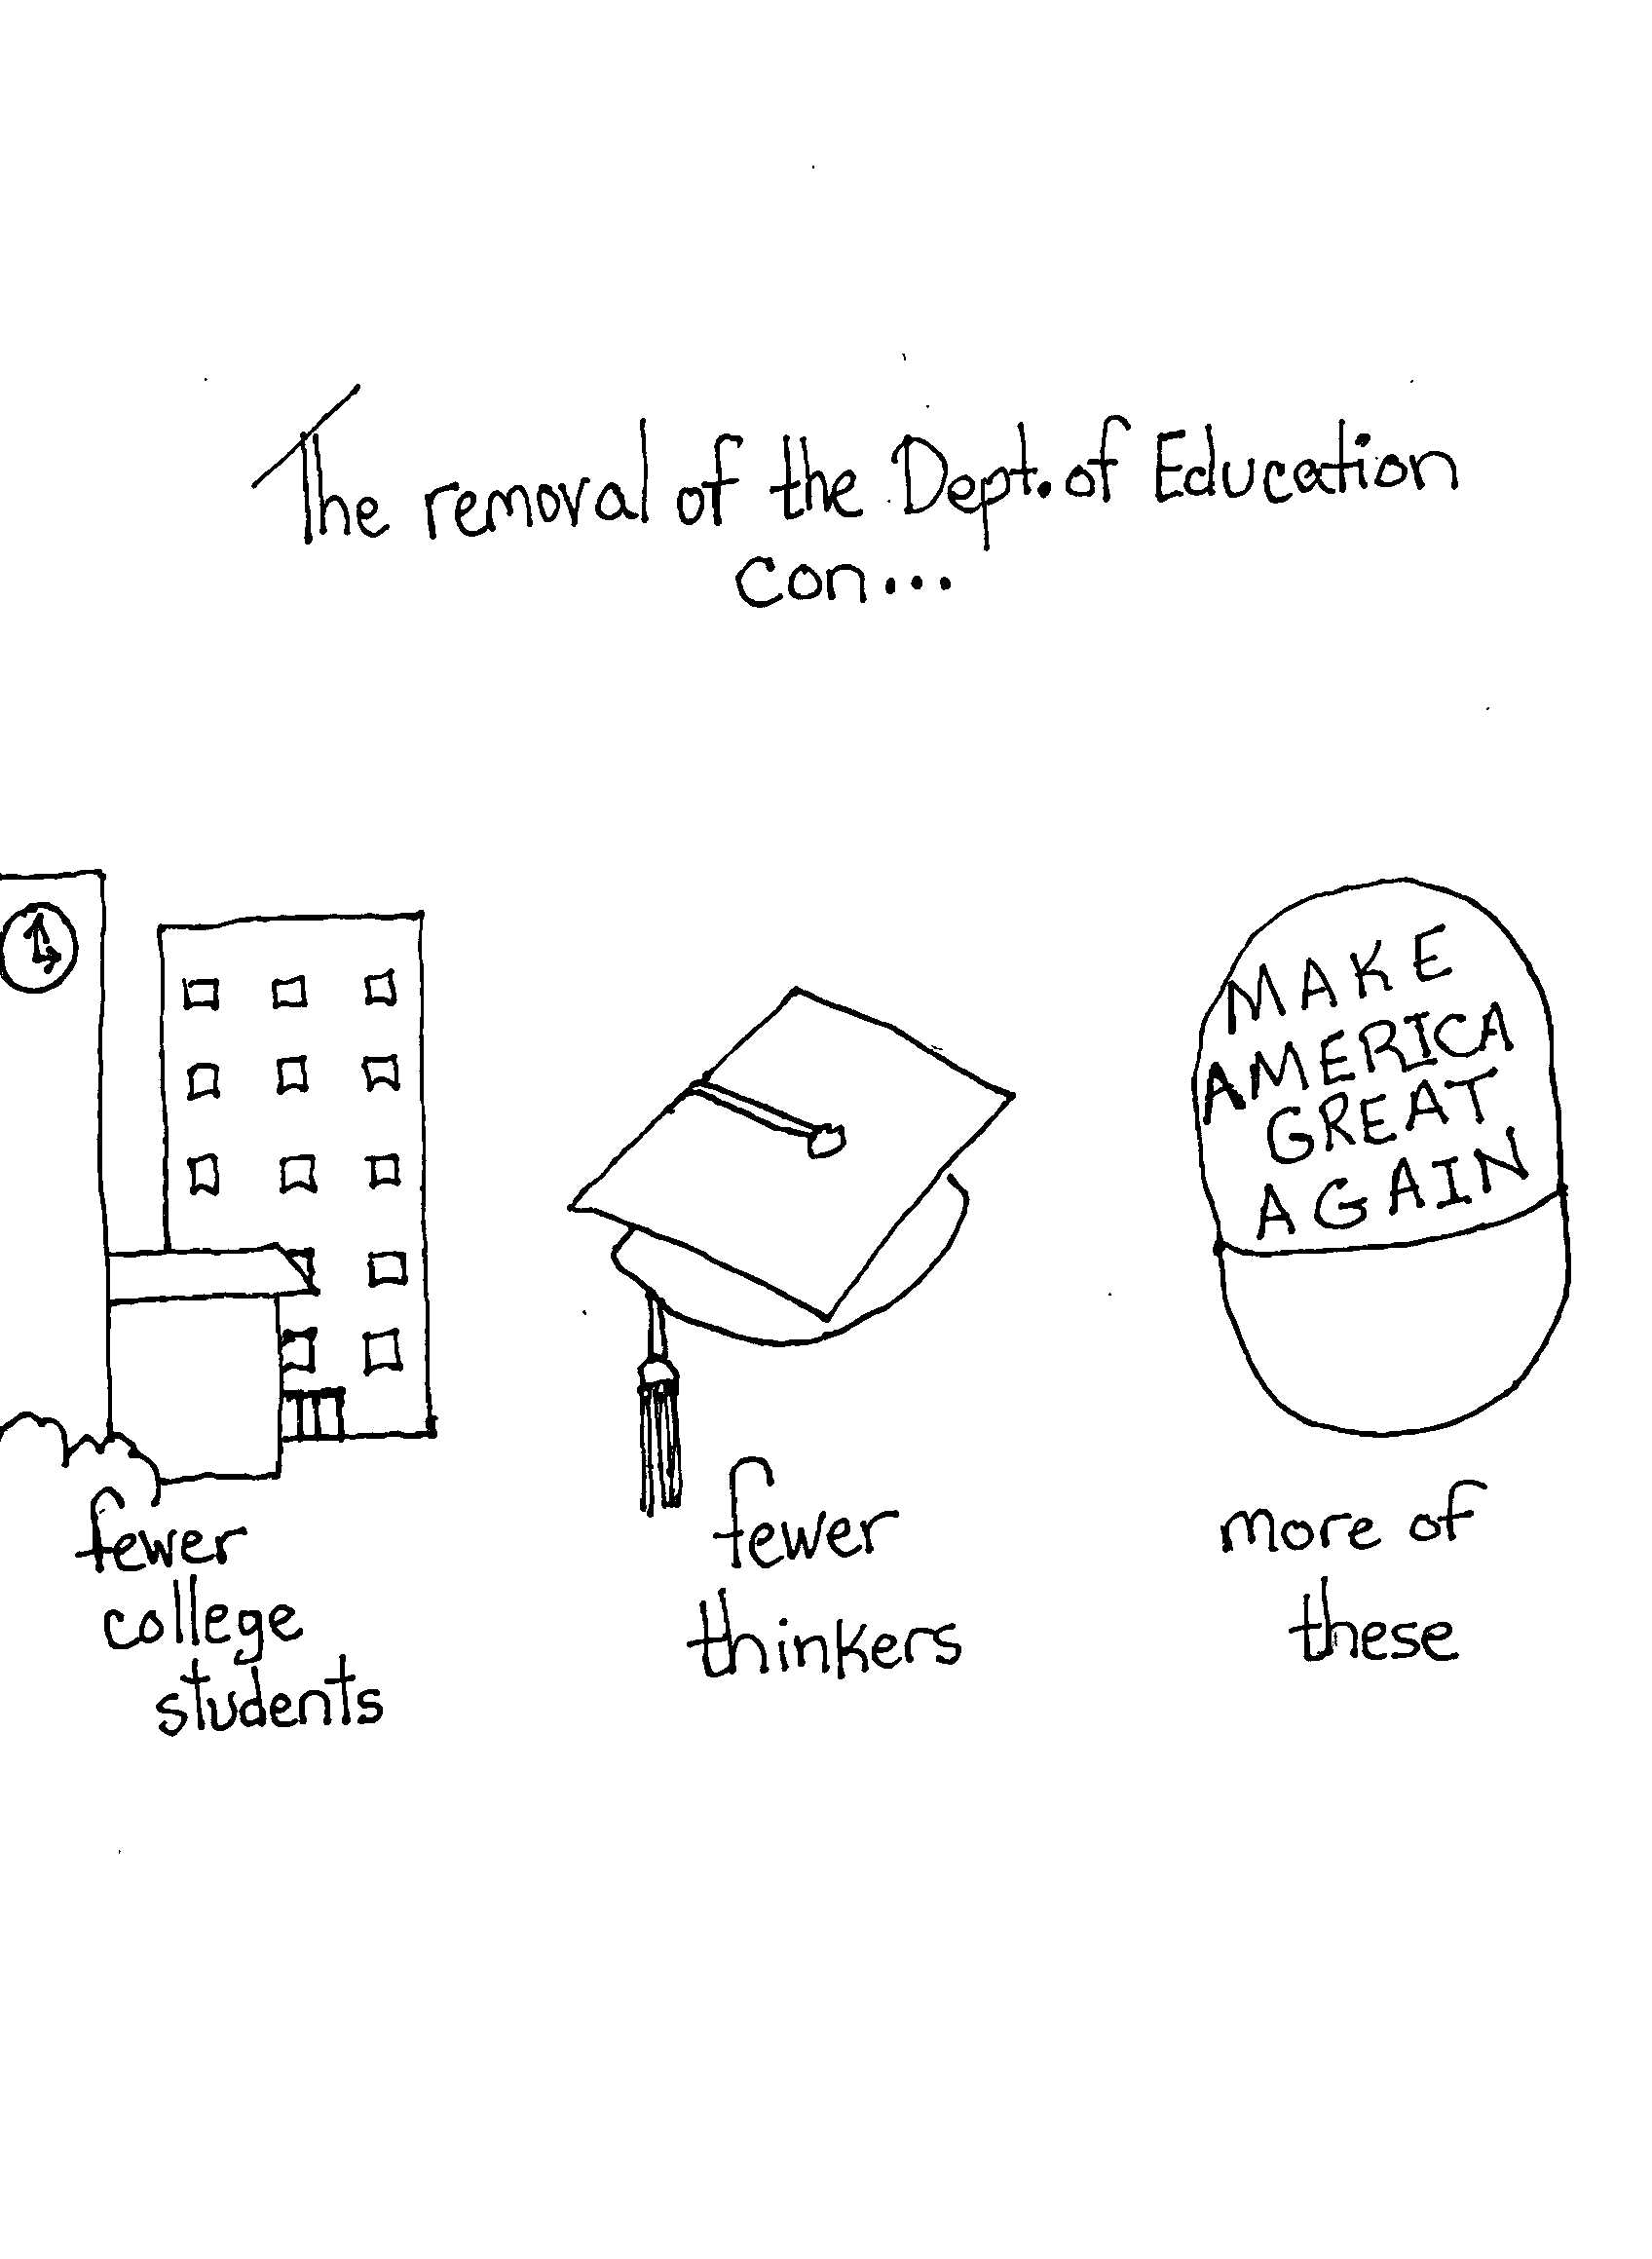 The removal of the Dept. of Education
con...
MAKE
AMERICA
GREAT
AGAIN
fewer
college
students
fewer
thinkers
more of
these